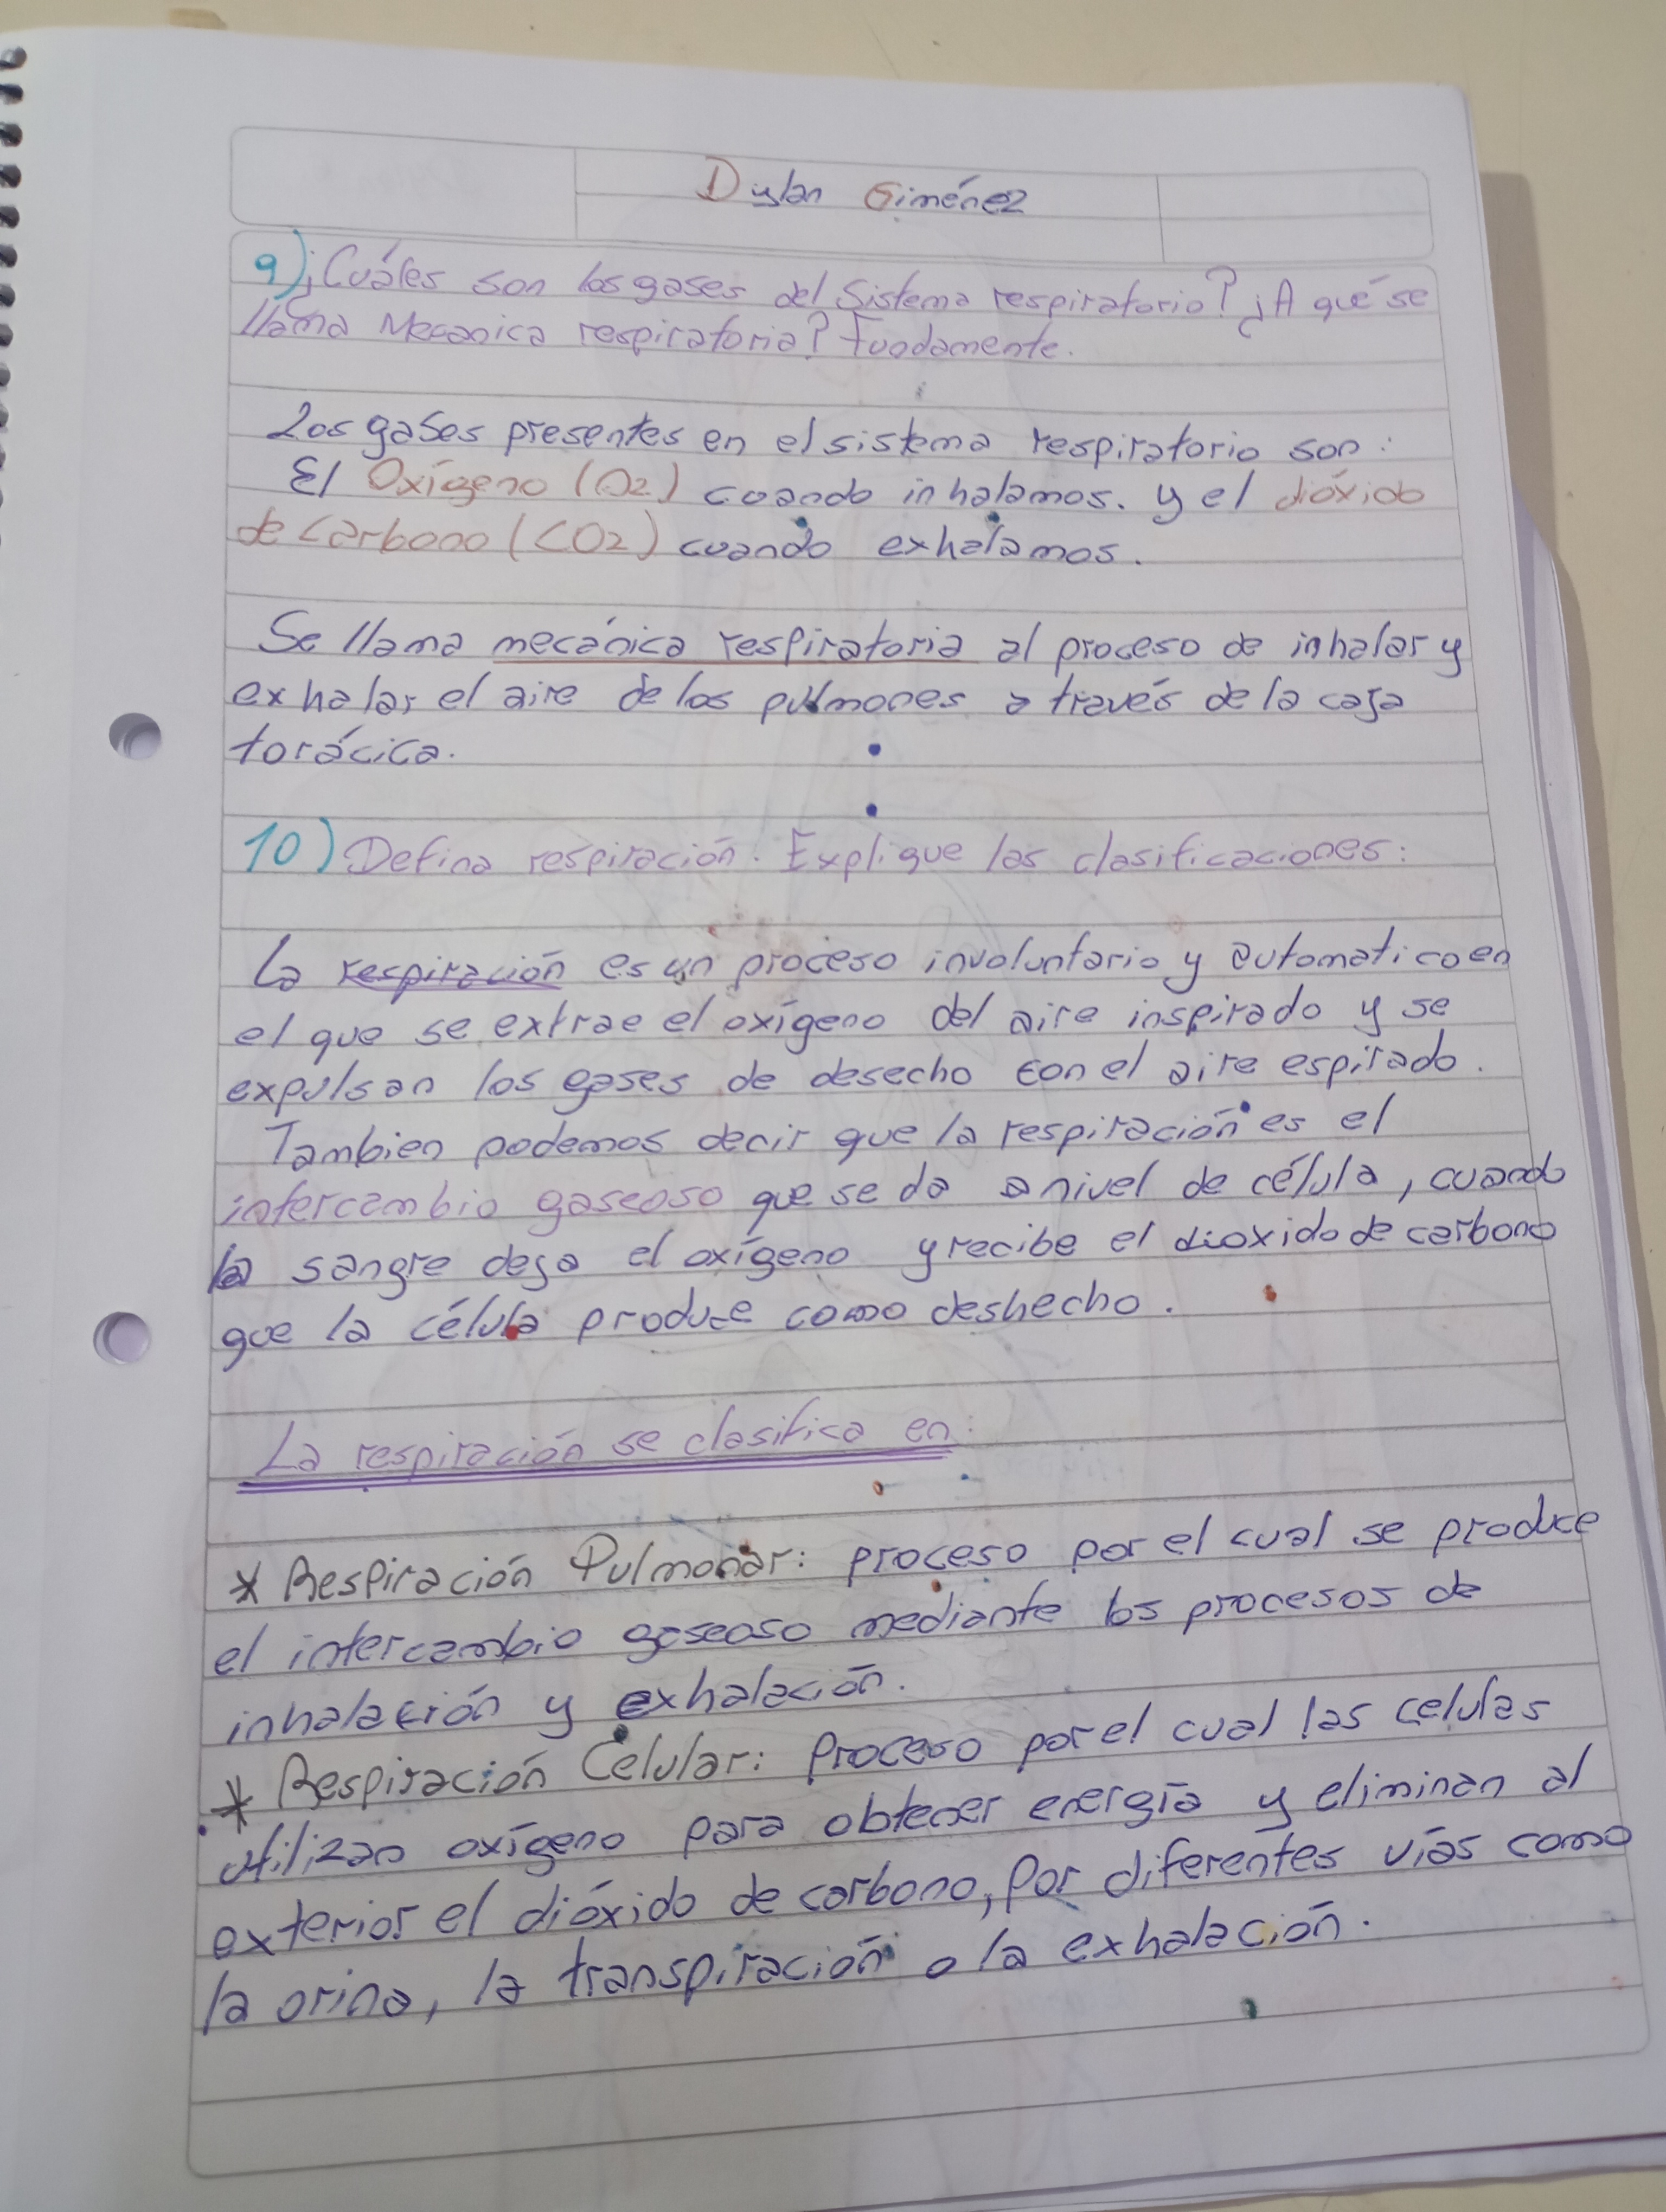 Dylan Giménez
9) ¿Cuáles son los gases del Sistema respiratorio? ¿A qué se
llama Mecanica respiratoria? Fundamente.
Los gases presentes en el sistema respiratorio son:
El Oxígeno (O2) cuando inhalamos. y el dióxido
de Carbono (CO2) cuando exhalamos.
Se llama mecánica respiratoria al proceso de inhalar y
exhalar el aire de los pulmones a través de la caja
torácica.
10) Defina respiración. Explique las clasificaciones:
La respiración es un proceso involuntario y automatico en
el que se extrae el oxígeno del aire inspirado y se
expulsan los gases de desecho con el aire espirado.
Tambien podemos decir que la respiración es el
intercambio gaseoso que se da a nivel de célula, cuando
la sangre deja el oxígeno y recibe el dioxido de carbono
que la célula produce como deshecho.
La respiración se clasifica en:
* Respiración Pulmonar: proceso por el cual se produce
el intercambio gaseoso mediante los procesos de
inhalación y exhalación.
* Respiración Celular: Proceso por el cual las celulas
utilizan oxígeno para obtener energía y eliminan al
exterior el dióxido de carbono, por diferentes vías como
la orina, la transpiración o la exhalación.